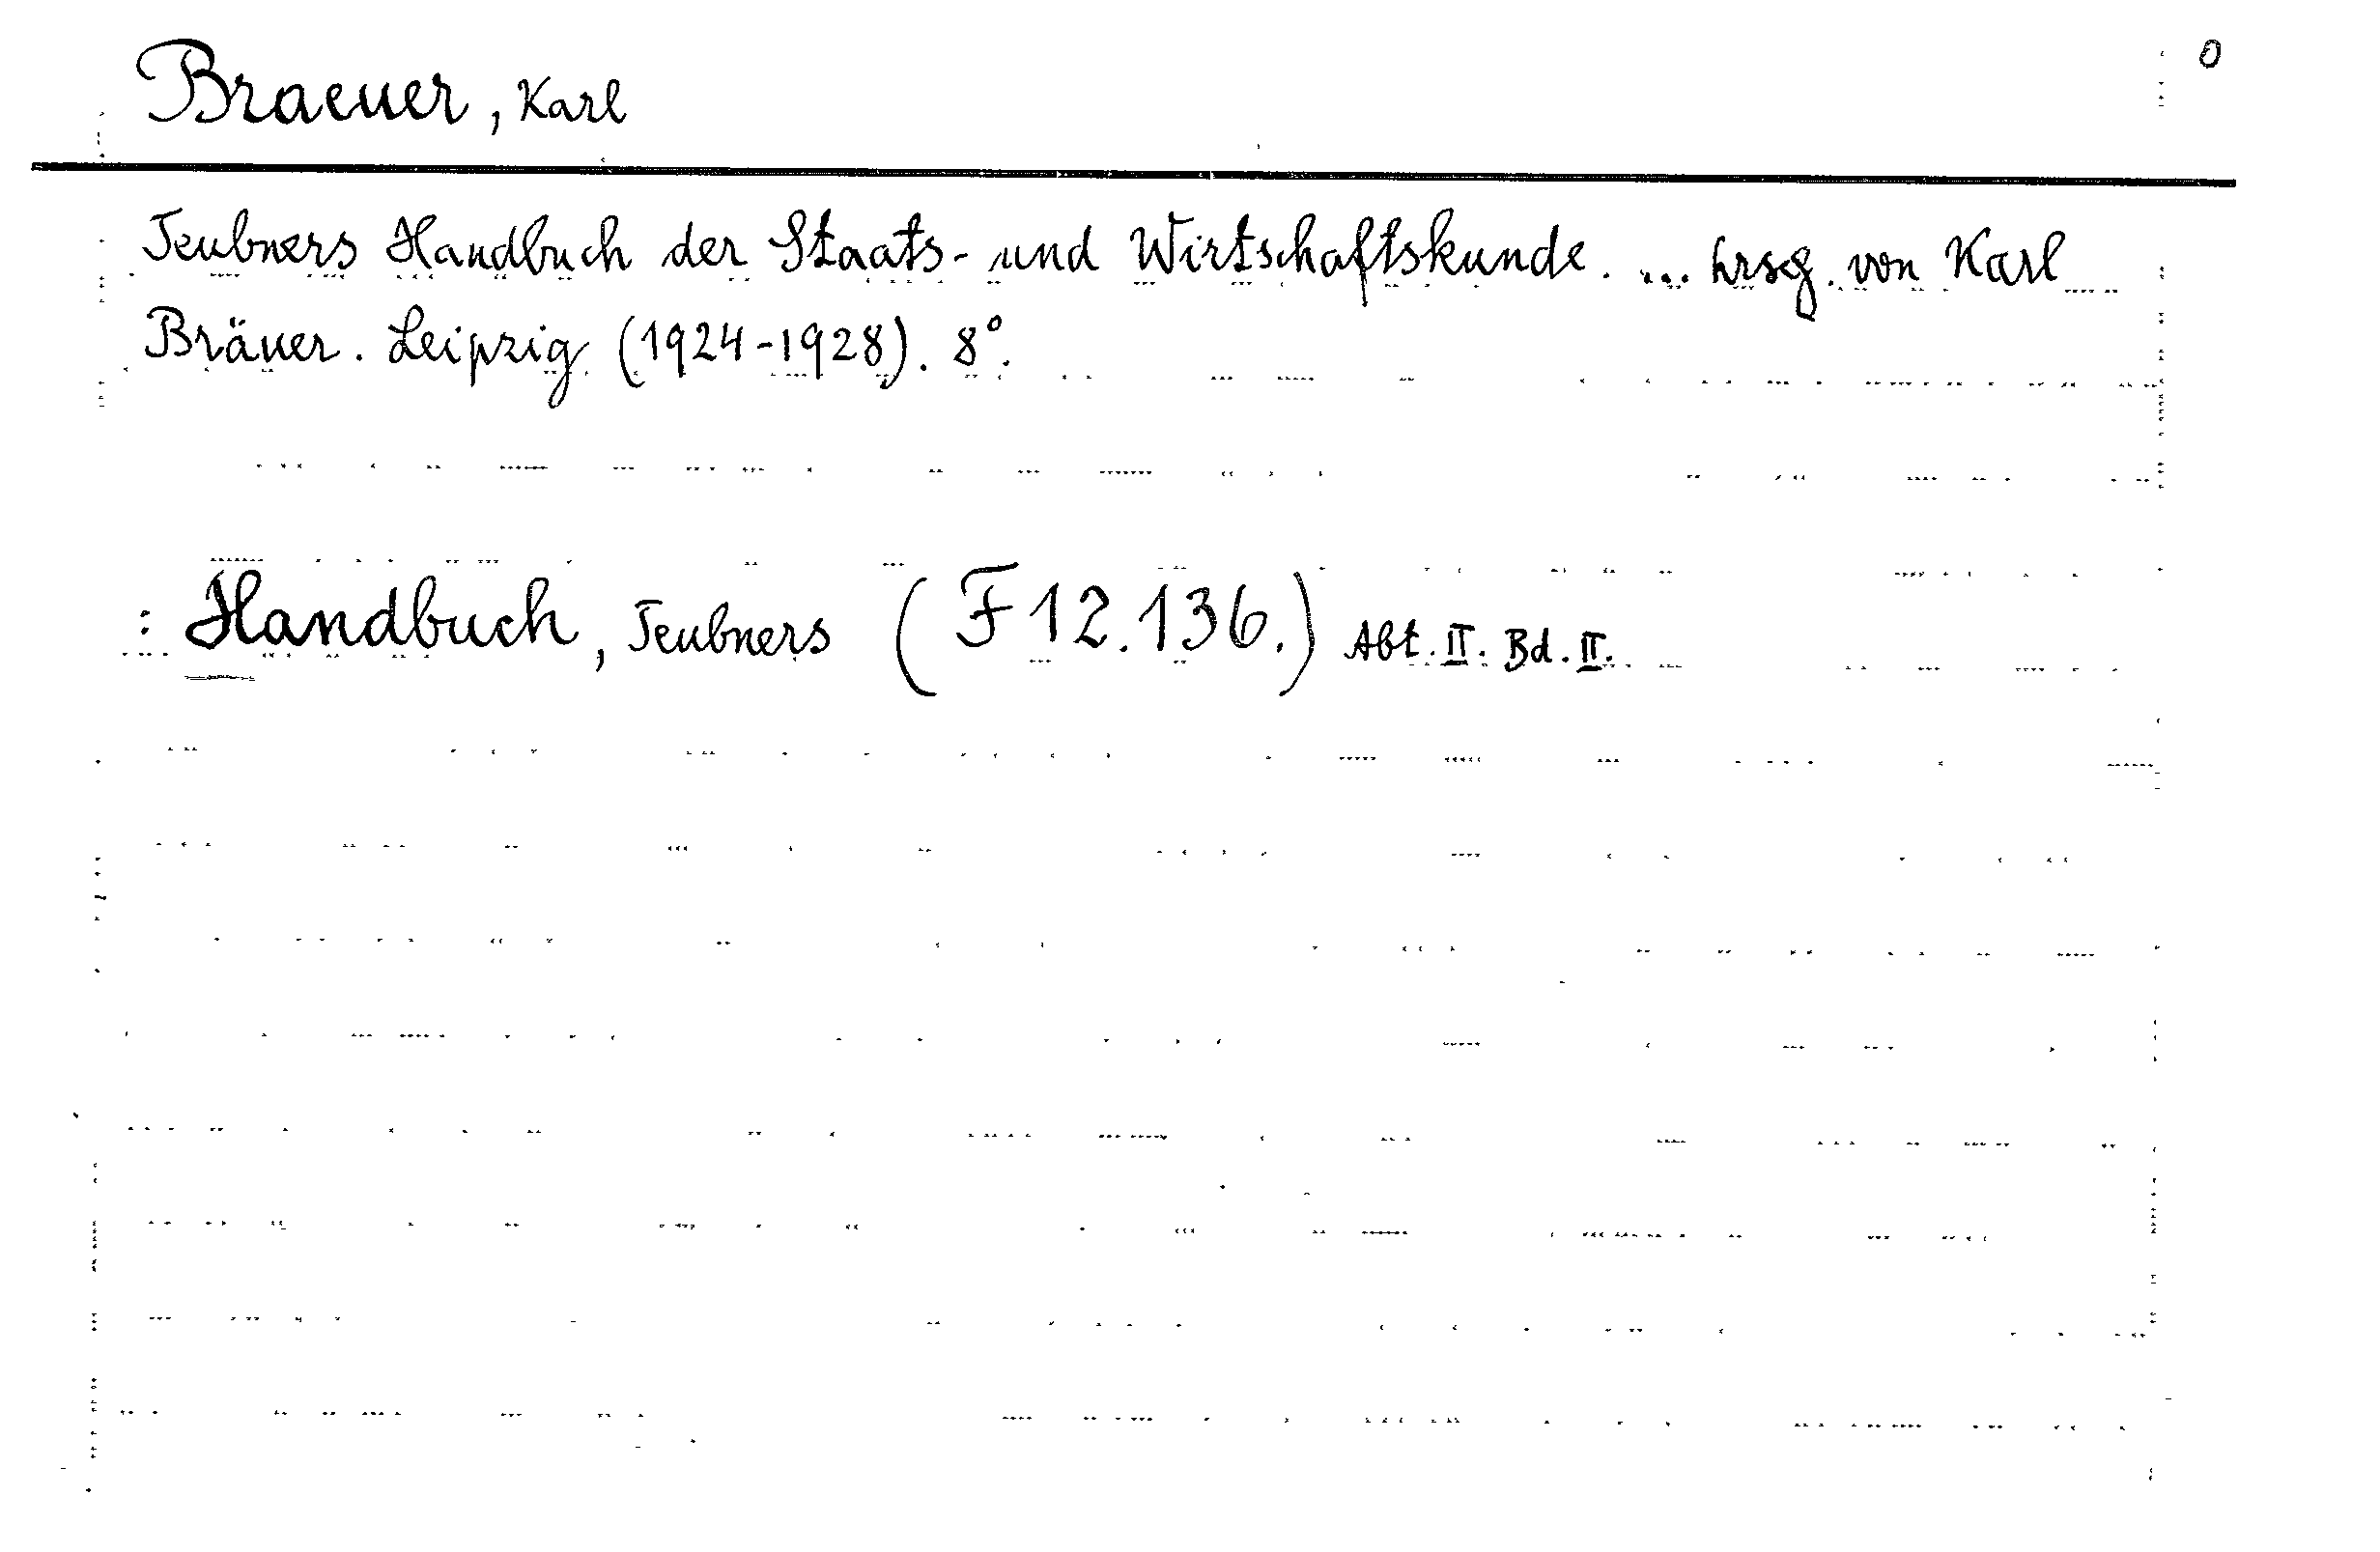 0
Braeuer, Karl
Teubners Handbuch der Staats- und Wirtschaftskunde. ... hrsg. von Karl
Bräuer. Leipzig (1924-1928). 8°.
: Handbuch, Teubners (F 12.136.) Abt. II. Bd. II.